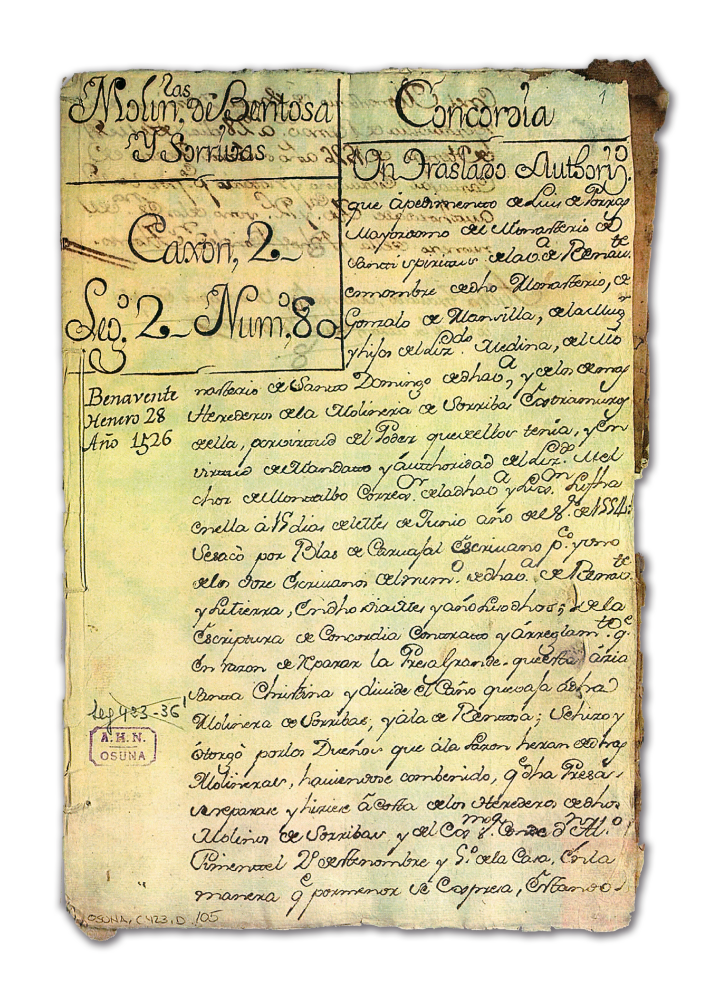 Molin.las de Bentosa
Y Sorrivas
Caxon, 2
Leg.o 2 Num.o 80
Benavente
Henero 28
Año 1526
Leg 423-36
A.H.N.
OSUNA
OSUNA, C 423, D. 105
1
Concordia
Un Traslado Author.do
que à pedimento de Luis de Porras
Mayordomo del Monasterio de
Sancti spiritus de la v.a de Benav.te
en nombre de dho Monasterio, de
Gonzalo de Mansilla, de la Mug.r
y hijos del Liz.do Medina, del Mo
nasterio de Santo Domingo de dha v.a, y de los demas
Herederos de la Molineria de Sorriba Extramuros
de ella, por virtud del Poder que de ellos tenia, y en
virtud de Mandato y authoridad del Liz.do Mel
chor de Montalbo Corre.or de la dha v.a y
en ella à 15 dias de el Mes de Junio año de 1554:
Se sacò por Blas de Carvajal Escrivano p.co y uno
de los doze Escrivanos del num.o de dha v.a de Benav.te
y su tierra, en dho dia mes y año susodhos; de la
Escriptura de Concordia Contrato y àrreglam.to q.e
en razon de reparar la Presa Grande que està àzia
Santa Christina y divide el Caño que va à la dha
Molinera de Sorribas, y à la de Bentosa; se hizo y
òtorgò por los Dueños que à la sazon heran de dhas
Molineras, haviendose combenido, q.e dha Presa
se reparase y hiziese à costa de los Herederos de dhos
Molinos de Sorribas y del Conde d.n Al.o
Pimentel 2.o de este nombre y 5.o de la Casa, en la
manera q.e por menor se Expresa, Estando